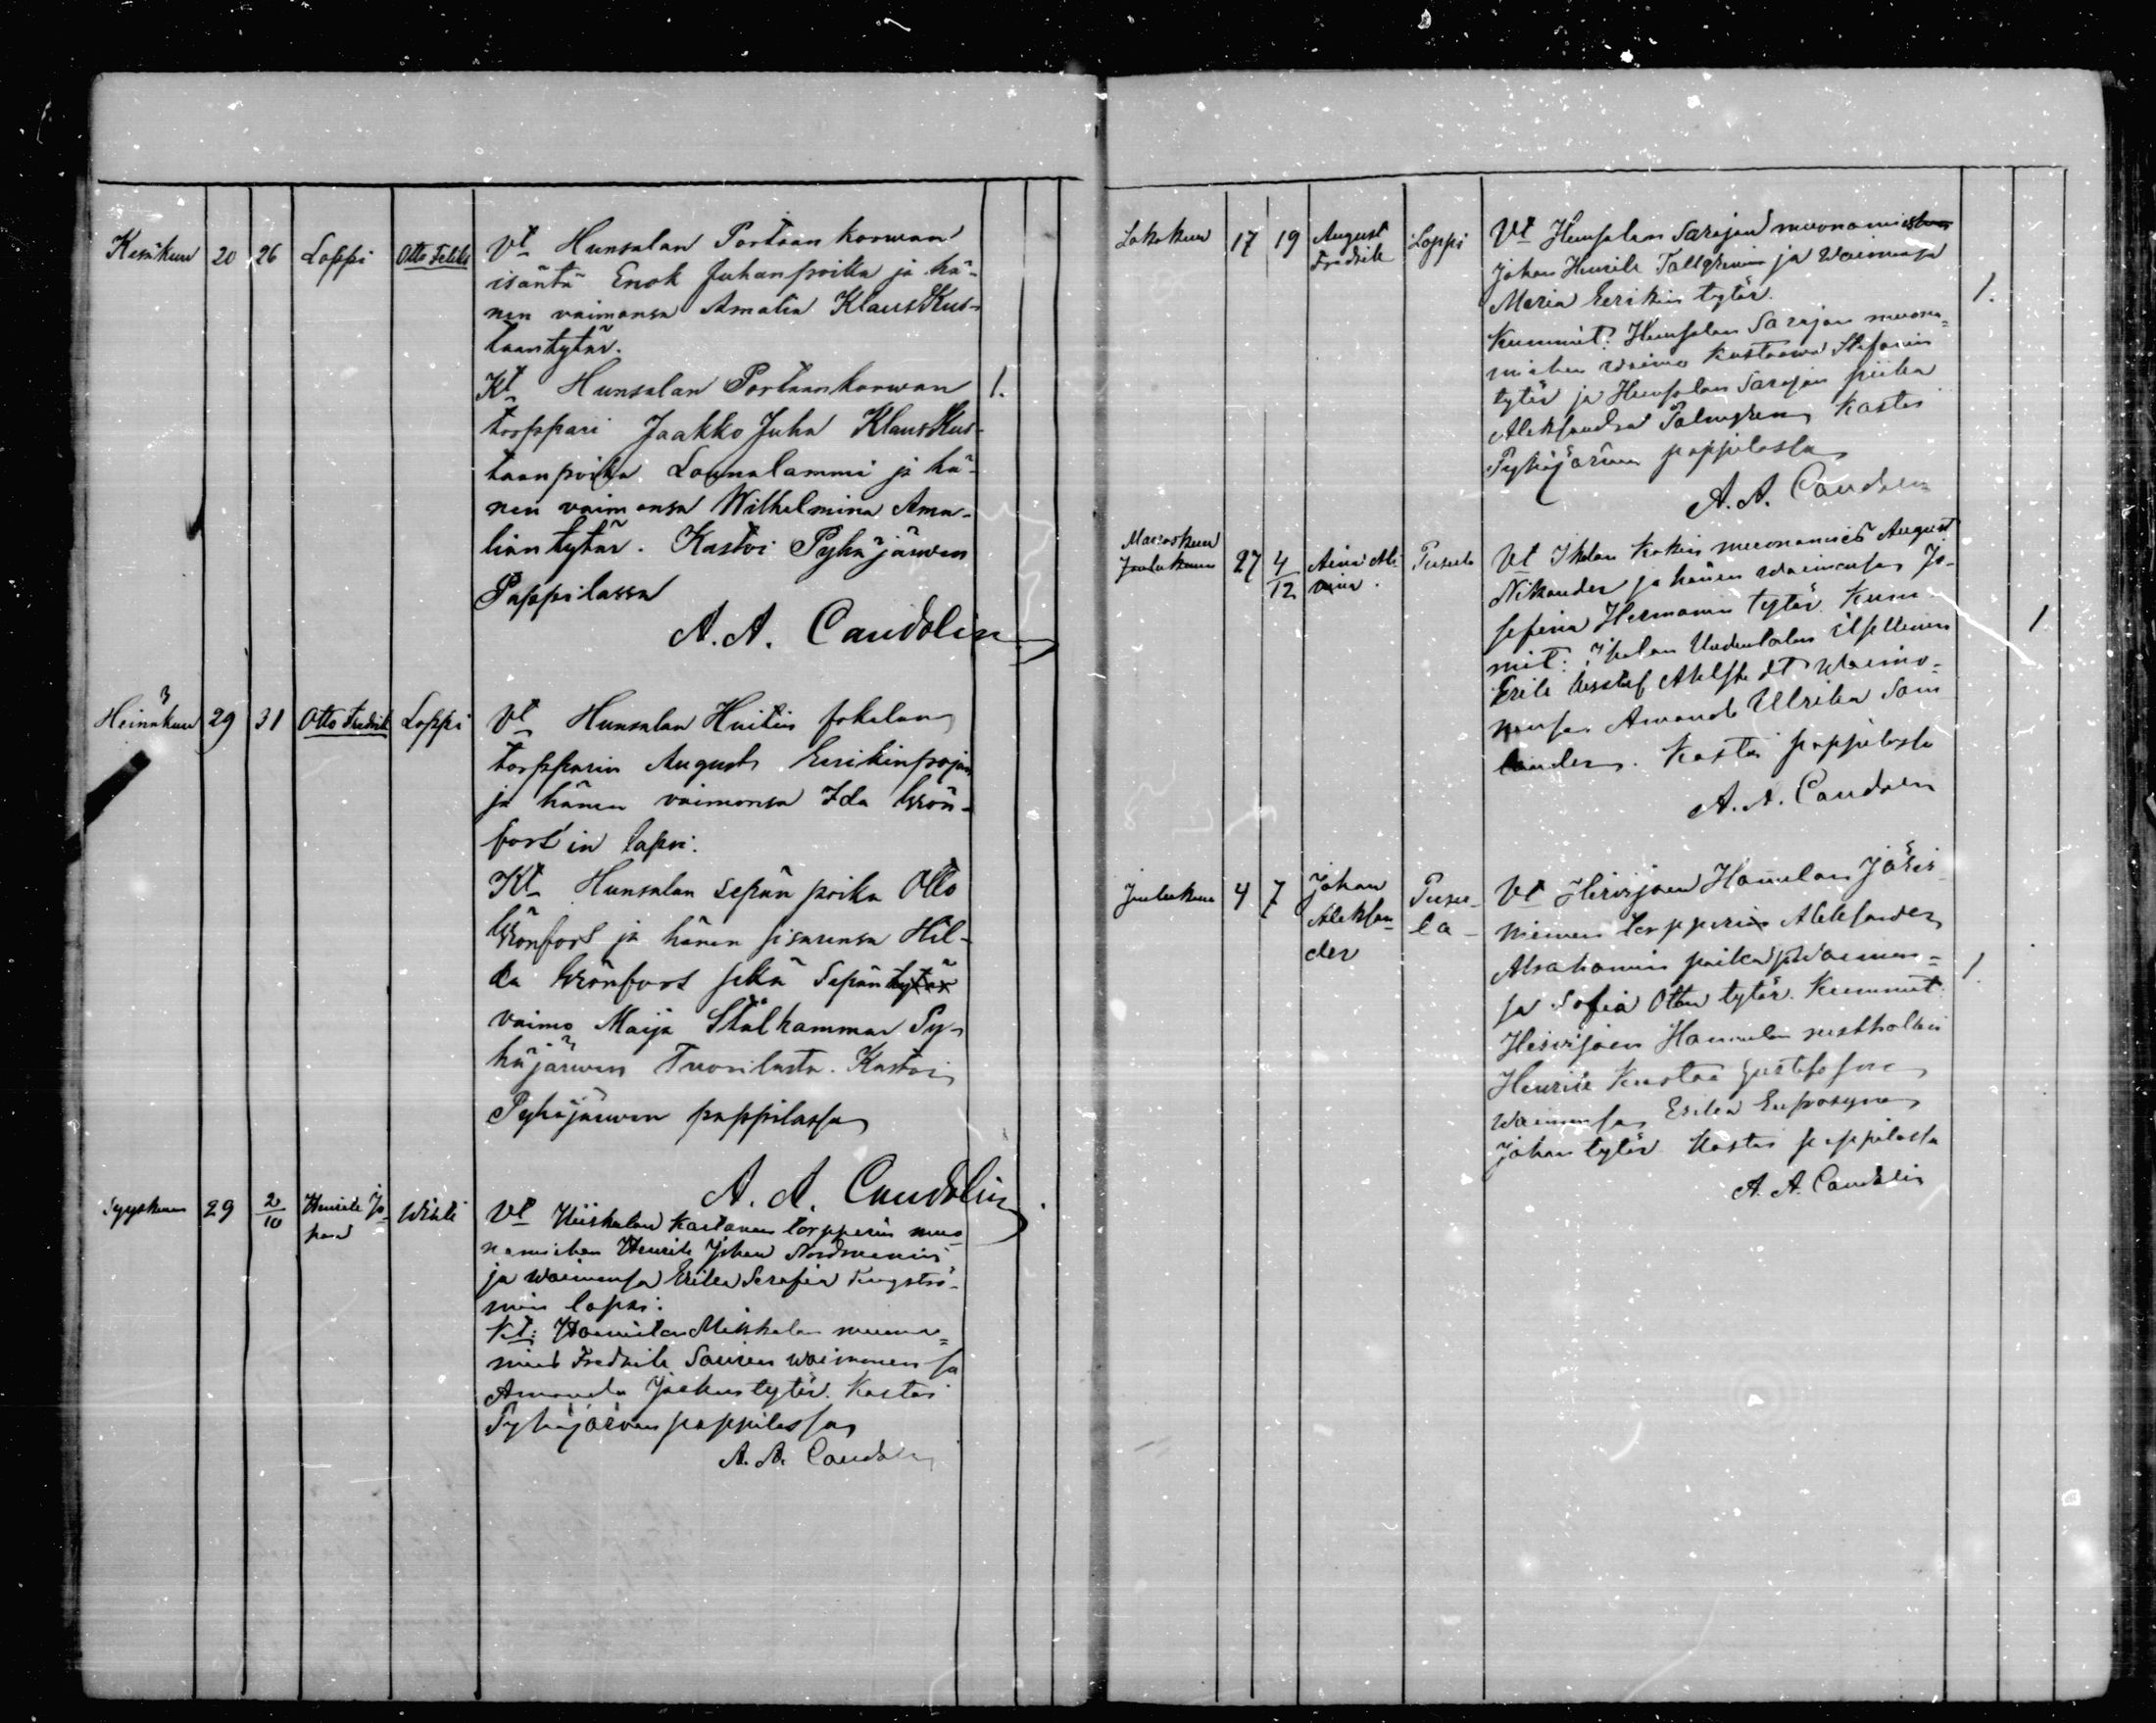 Kesäkuu 20 26 Loppi Otto Feliks
Vt Hunsalan Portaankorwan
isäntä Enok Juhanpoika ja hä-
nen vaimonsa Amalia Klaus Kus-
taantytär.
Kt Hunsalan Portaankorwan 1.
torppari Jaakko Juha Klaus Kus-
taanpoika Lounalammi ja hä-
nen vaimonsa Wilhelmina Ama-
liantytär. Kastoi Pyhäjärwen
Pappilassa
A. A. Candolin
Heinäkuu 29 31 Otto Fredrik Loppi
Vt Hunsalan Huitin
torpparin August Eerikinpojan
ja hänen vaimonsa Ida Grön-
fors'in lapsi.
Kt Hunsalan sepän poika Otto
Grönfors ja hänen sisarensa Hil-
da Grönfors sekä Sepän tytär
vaimo Maija Stålhammar Py-
häjärwen Tuorilasta. Kastoi
Pyhäjärwen pappilassa
A. A. Candolin
Syyskuu 29 2/10 Henrik Jo- Wihti
Vt torpparin muo-
namiehen Henrik Johan Nordmanin
ja waimonsa Erika Serafia
min lapsi.
Kt:
mies Fredrik Saurén waimonensa
Amanda Jaakontytär. Kastoi
Pyhäjärven pappilassa
A. A. Candolin
Lokakuu 17 19 August Fredrik Loppi
Vt Hunsalan Sarajan muonamies
Johan Henrik Tallgrenin ja waimonsa
Maria Eerikin tytär. 1.
Kummit: Hunsalan Sarajan muona-
miehen waimo Kustaawa Stefanin
tytär ja Hunsalan Sarajan piika
Aleksandra Palmgren Kastoi
Pyhäjärven pappilassa
A. A. Candolin
Marraskuu
Joulukuu 27 4/12 Aina Al- vina. Pusula
Vt Ikalan muonamies August
Nikander ja hänen waimonsa Jo-
sefina Hermanin tytär. Kum- 1
mit: Ikalan Uudentalon itsellinen
Erik Gustaf Ahlstedt waimo-
nensa Amanda Ulrika
Kastoi pappilassa
A. A. Candolin
Joulukuu 4 7 Johan Aleksan- der Pusu- la
Vt Hirvijoen Hannulan
niemen torpparin Aleksander
Abrahamin poika ja waimon-
sa Sofia Otton tytär. Kummit 1
Hirvijoen Hannulan rusthollari
Henrik Kustaa Gustafsson
waimonsa Erika Euprosyna
Johan tytär Kastoi pappilassa
A. A. Candolin